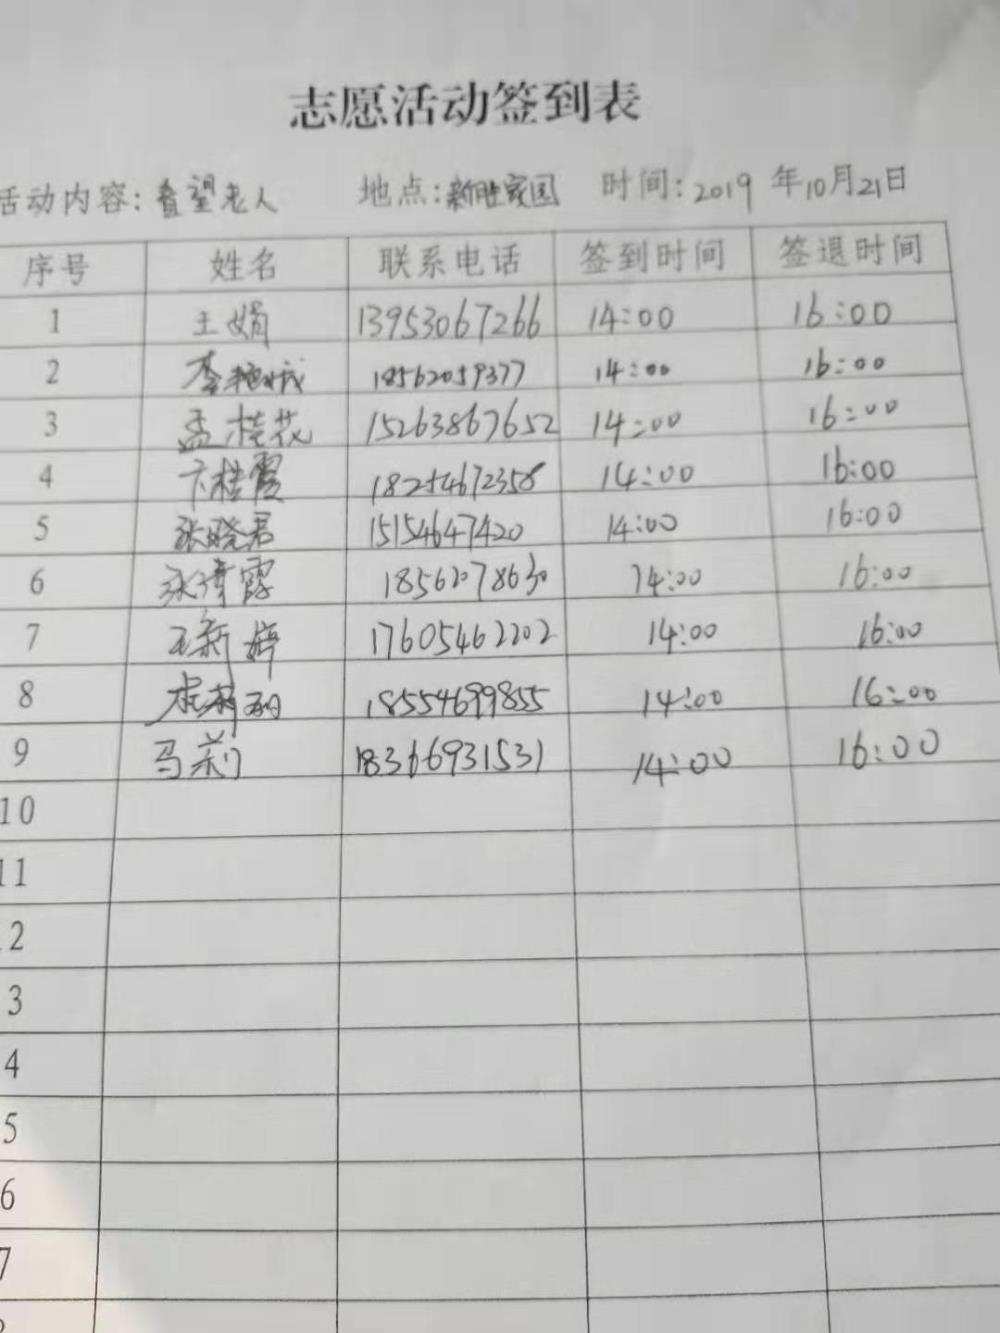 志愿活动签到表
活动内容:看望老人 地点:新胜家园 时间:2019年10月21日
序号 姓名 联系电话 签到时间 签退时间
1 王娟 13953067266 14:00 16:00
2 李艳 18562059377 14:00 16:00
3 孟桂花 15263867652 14:00 16:00
4 卞桂霞 18254672358 14:00 16:00
5 张晓君 15154647420 14:00 16:00
6 张 霞 18562078630 14:00 16:00
7 王新婷 17605462202 14:00 16:00
8 18554699855 14:00 16:00
9 马莉 18366931531 14:00 16:00
10
11
12
3
4
5
6
7